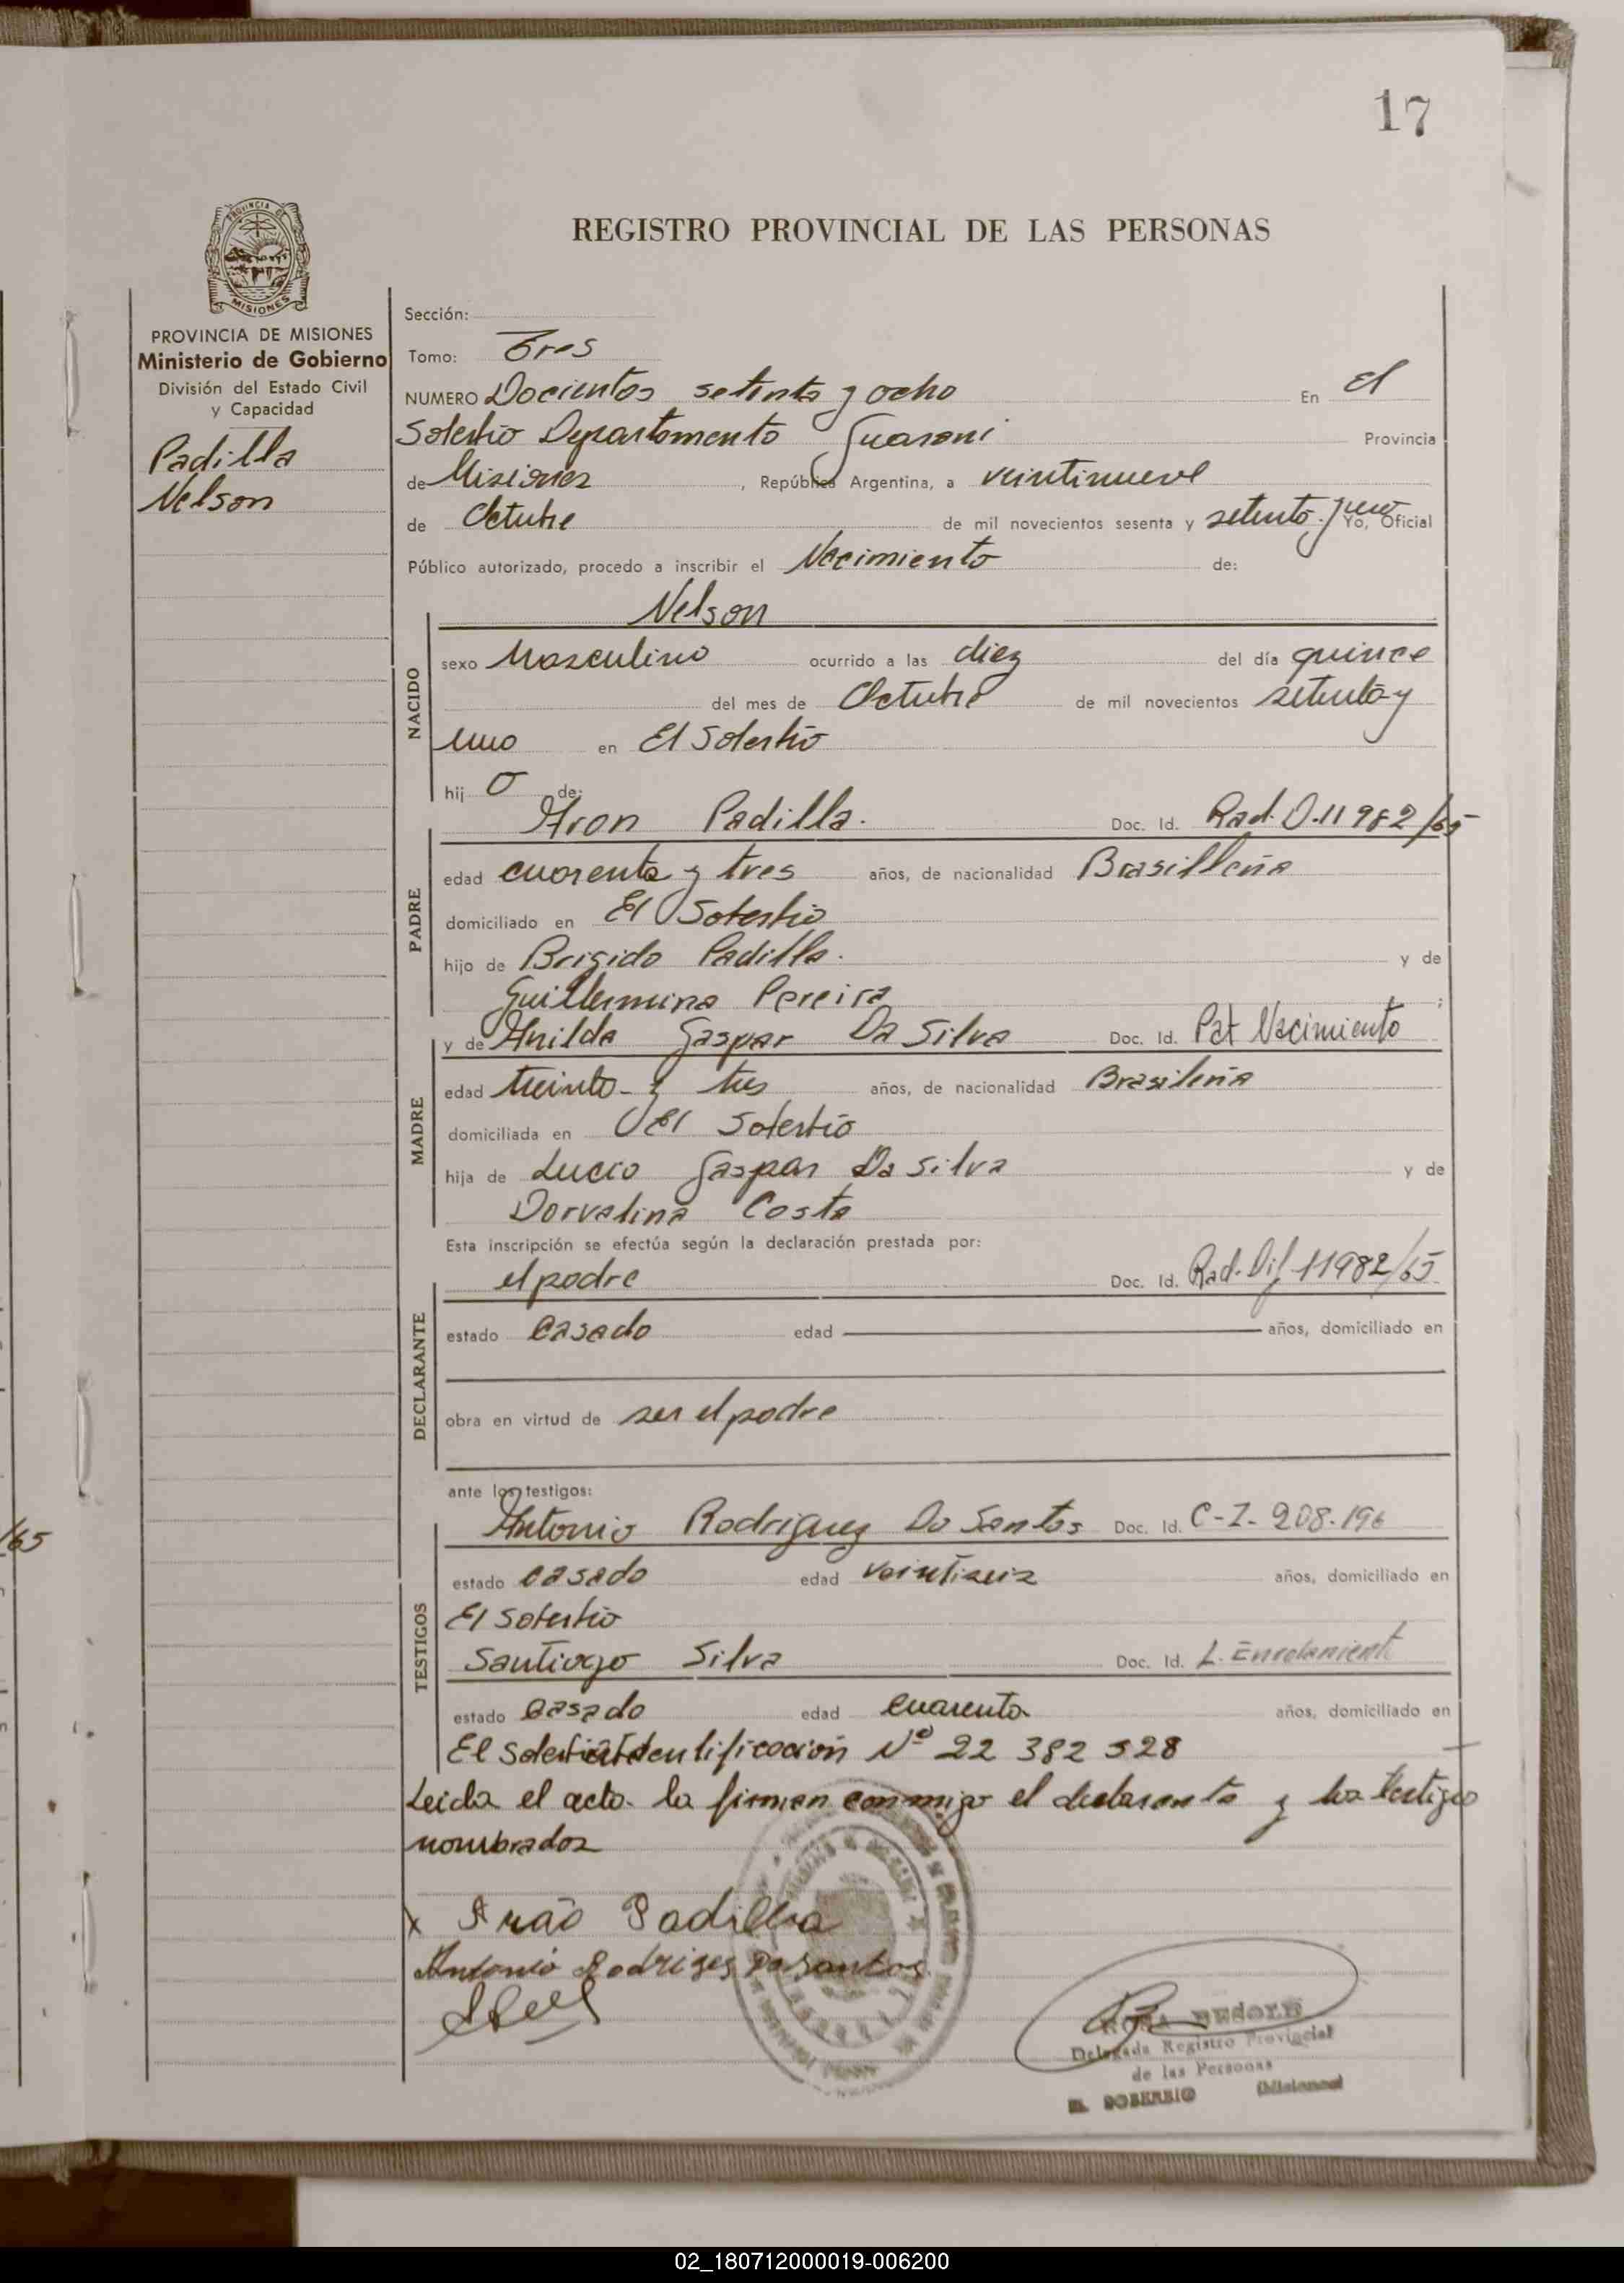 17
PROVINCIA DE
MISIONES
REGISTRO PROVINCIAL DE LAS PERSONAS
PROVINCIA DE MISIONES
Ministerio de Gobierno
División del Estado Civil
y Capacidad
Padilla
Nelson
Sección:
Tomo: Tres
NUMERO Docientos setenta y ocho En El
Soberbio Departamento Guarani Provincia
de Misiones, República Argentina, a veintinueve
de Octubre de mil novecientos sesenta y setenta y uno Yo, Oficial
Público autorizado, procedo a inscribir el Nacimiento de:
Nelson
NACIDO
sexo Masculino ocurrido a las diez del día quince
del mes de Octubre de mil novecientos setenta y
uno en El Soberbio
hij o de:
Aron Padilla. Doc. Id. Rad. D-11982/65
PADRE
edad cuarenta y tres años, de nacionalidad Brasilleña
domiciliado en El Soberbio
hijo de Brigido Padilla. y de
Guillermina Pereira ;
MADRE
y de Anilda Gaspar Da Silva Doc. Id. Pat Nacimiento
edad treinta y tres años, de nacionalidad Brasileña
domiciliada en El Soberbio
hija de Lucio Gaspar Da Silva y de
Dorvalina Costa
Esta inscripción se efectúa según la declaración prestada por:
el padre Doc. Id. Rad. Dif 11982/65
DECLARANTE
estado casado edad años, domiciliado en
obra en virtud de ser el padre
ante los testigos:
Antonio Rodriguez Do Santos Doc. Id. C-I-208.196
TESTIGOS
estado casado edad veintiseis años, domiciliado en
El Soberbio
Santiago Silva Doc. Id. L. Enrolamient
estado casado edad cuarenta años, domiciliado en
El Soberbio Identificación Nº 22 382 528
Leida el acta la firman conmigo el declarante y los testigos
nombrados
x Arão Padilha
Antonio Rodriges Dosantos
/65
Delegada Registro Provincial
de las Personas
EL SOBERBIO (Misiones)
02_180712000019-006200